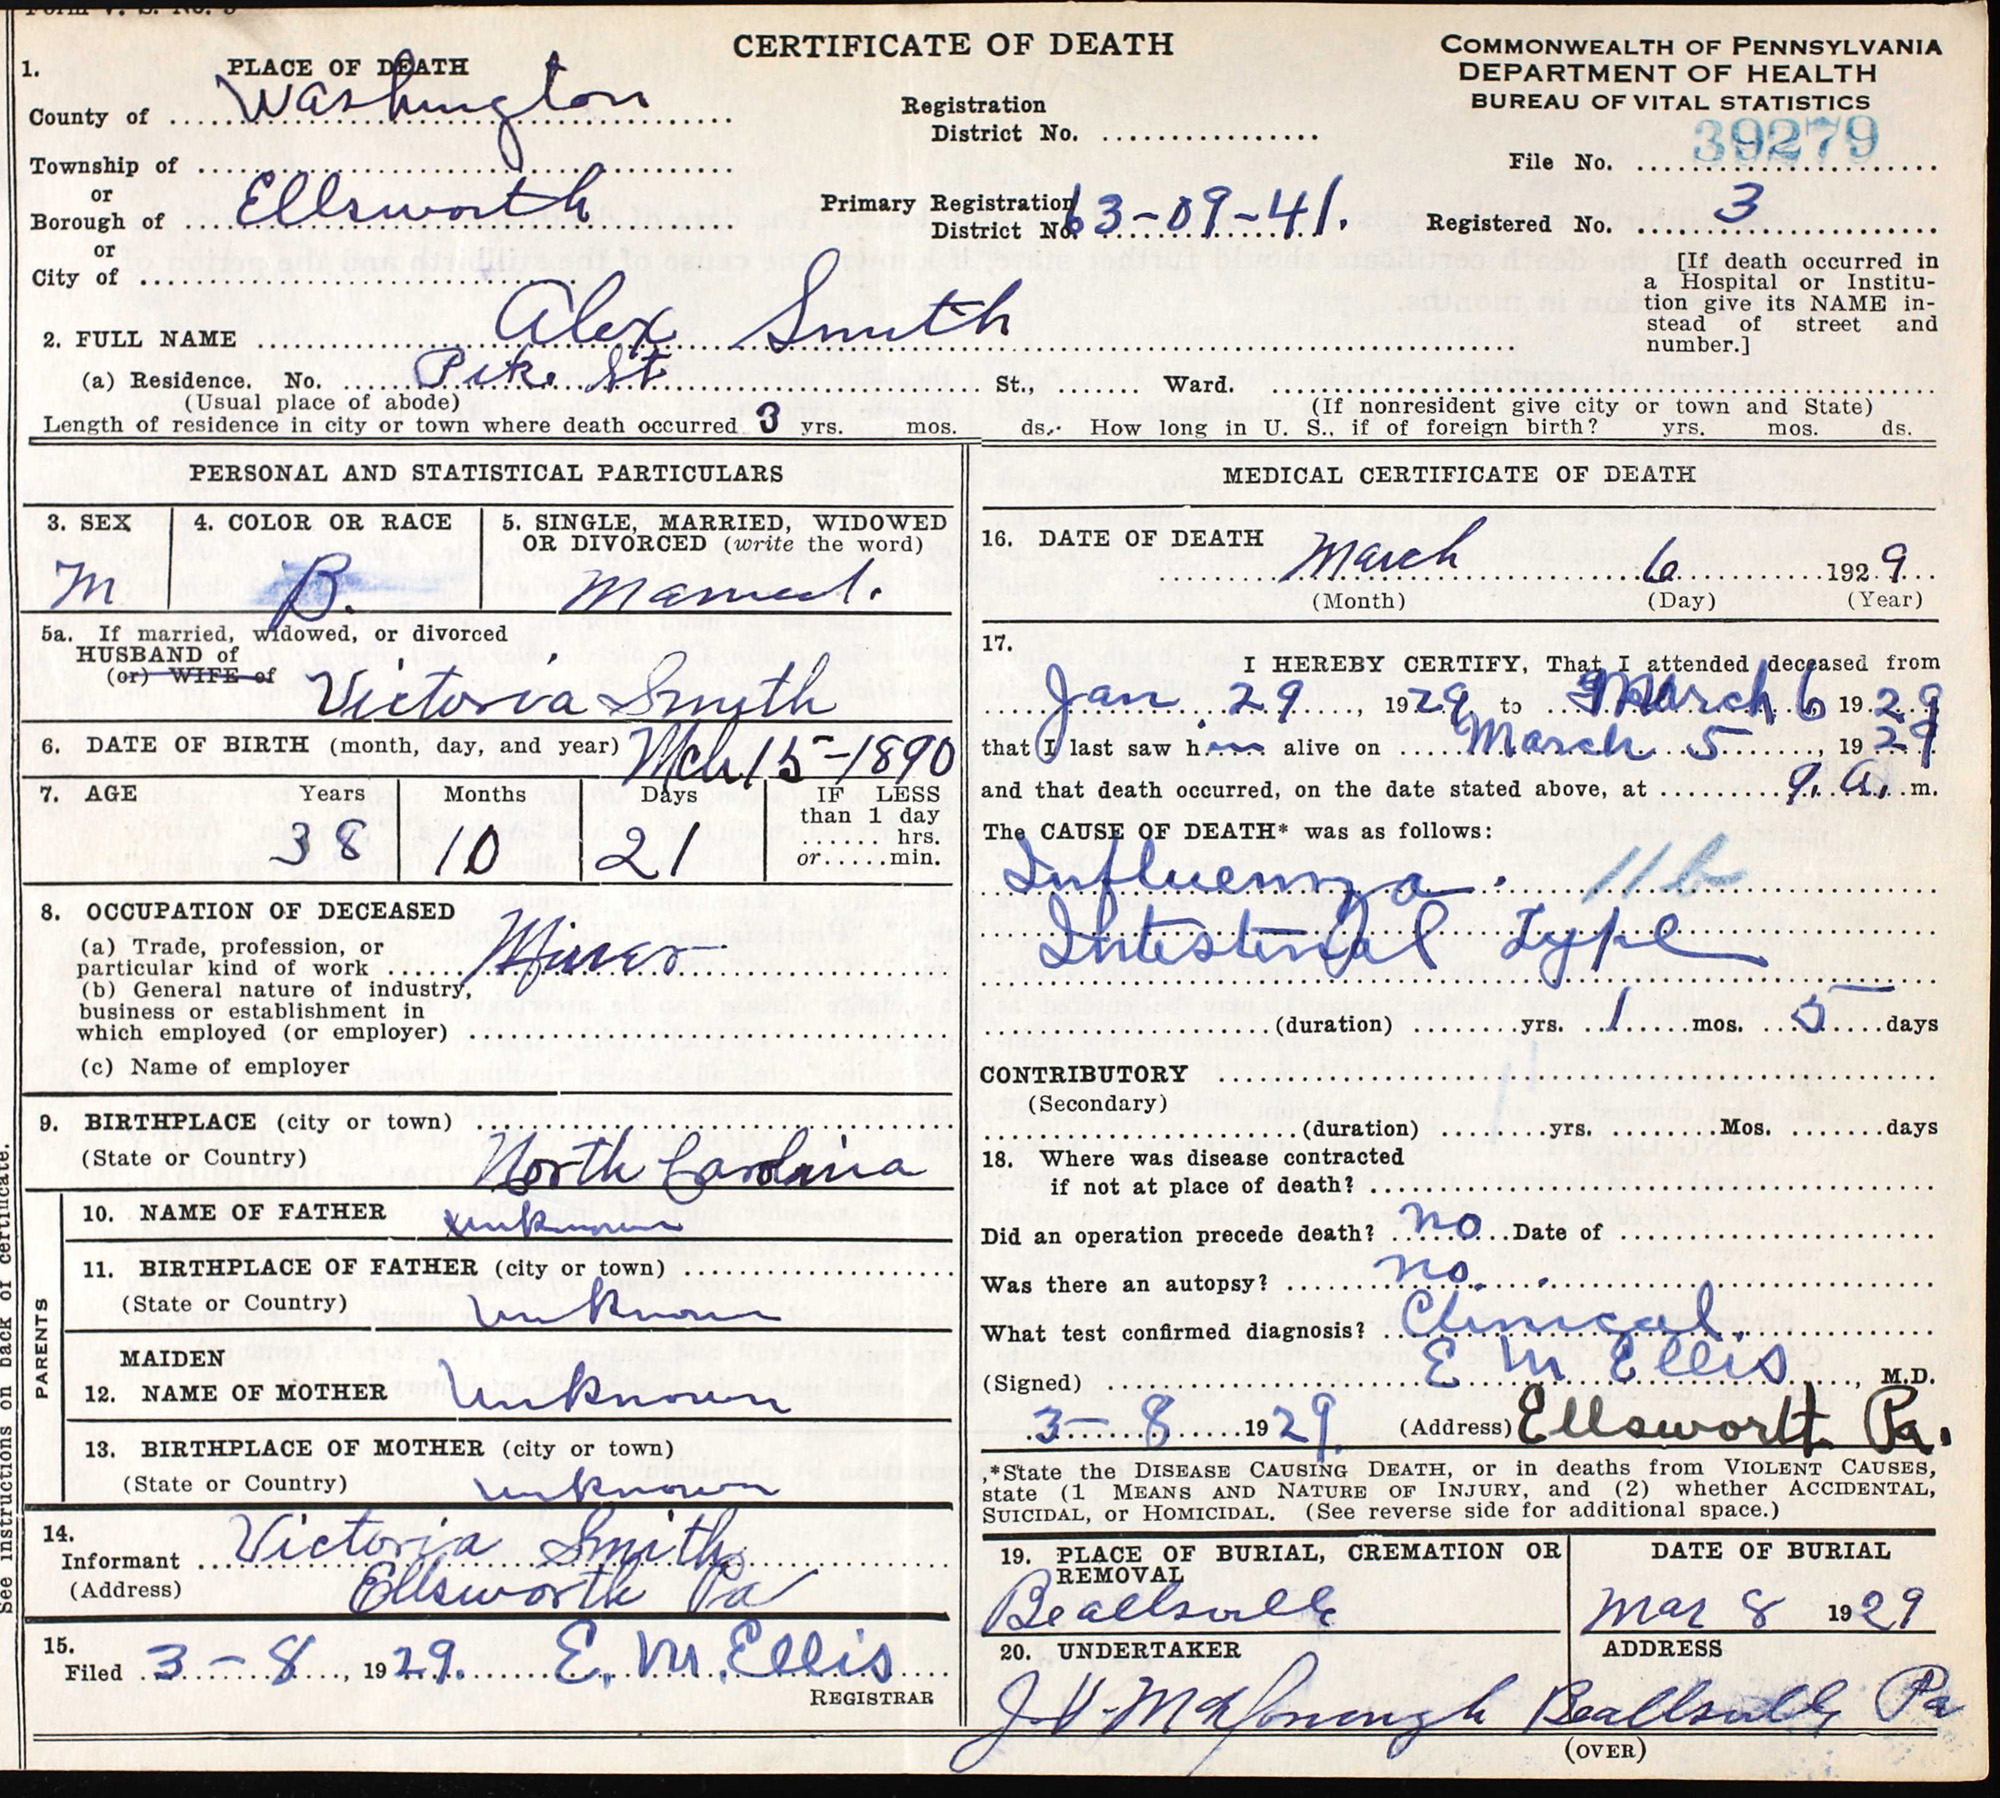 Form V. S. No. 5
CERTIFICATE OF DEATH
COMMONWEALTH OF PENNSYLVANIA
DEPARTMENT OF HEALTH
BUREAU OF VITAL STATISTICS
1. PLACE OF DEATH
County of Washington
Registration District No.
File No. 39279
Township of
or
Borough of Ellsworth
or
City of
Primary Registration District No. 63-09-41.
Registered No. 3
[If death occurred in
a Hospital or Institu-
tion give its NAME in-
stead of street and
number.]
2. FULL NAME Alex Smith
(a) Residence. No. Pike St St., Ward.
(Usual place of abode) (If nonresident give city or town and State)
Length of residence in city or town where death occurred 3 yrs. mos. ds. How long in U. S., if of foreign birth? yrs. mos. ds.
PERSONAL AND STATISTICAL PARTICULARS
3. SEX
M
4. COLOR OR RACE
B.
5. SINGLE, MARRIED, WIDOWED
OR DIVORCED (write the word)
Married.
5a. If married, widowed, or divorced
HUSBAND of
(or) WIFE of Victoria Smith
6. DATE OF BIRTH (month, day, and year) Mch 15-1890
7. AGE Years Months Days IF LESS
than 1 day
38 10 21 hrs.
or min.
8. OCCUPATION OF DECEASED
(a) Trade, profession, or
particular kind of work Miner
(b) General nature of industry,
business or establishment in
which employed (or employer)
(c) Name of employer
9. BIRTHPLACE (city or town)
(State or Country) North Carolina
PARENTS
10. NAME OF FATHER unknown
11. BIRTHPLACE OF FATHER (city or town)
(State or Country) unknown
MAIDEN
12. NAME OF MOTHER Unknown
13. BIRTHPLACE OF MOTHER (city or town)
(State or Country) unknown
14.
Informant Victoria Smith
(Address) Ellsworth Pa
15.
Filed 3-8, 1929. E. M. Ellis
REGISTRAR
See instructions on back of certificate.
MEDICAL CERTIFICATE OF DEATH
16. DATE OF DEATH
March 6 1929
(Month) (Day) (Year)
17.
I HEREBY CERTIFY, That I attended deceased from
Jan. 29, 1929 to March 6 1929
that I last saw him alive on March 5, 1929
and that death occurred, on the date stated above, at 9. A. m.
The CAUSE OF DEATH* was as follows:
Influenza. 11b
Intestinal Type
(duration) yrs. 1 mos. 5 days
CONTRIBUTORY
(Secondary)
11
(duration) yrs. Mos. days
18. Where was disease contracted
if not at place of death?
Did an operation precede death? no Date of
Was there an autopsy? no.
What test confirmed diagnosis? Clinical.
(Signed) E M Ellis, M.D.
3-8 1929. (Address) Ellsworth Pa.
*State the DISEASE CAUSING DEATH, or in deaths from VIOLENT CAUSES,
state (1 MEANS AND NATURE OF INJURY, and (2) whether ACCIDENTAL,
SUICIDAL, or HOMICIDAL. (See reverse side for additional space.)
19. PLACE OF BURIAL, CREMATION OR
REMOVAL
Beallsville
DATE OF BURIAL
Mar 8 1929
20. UNDERTAKER
J. V. McDonough
ADDRESS
Beallsville Pa
(OVER)